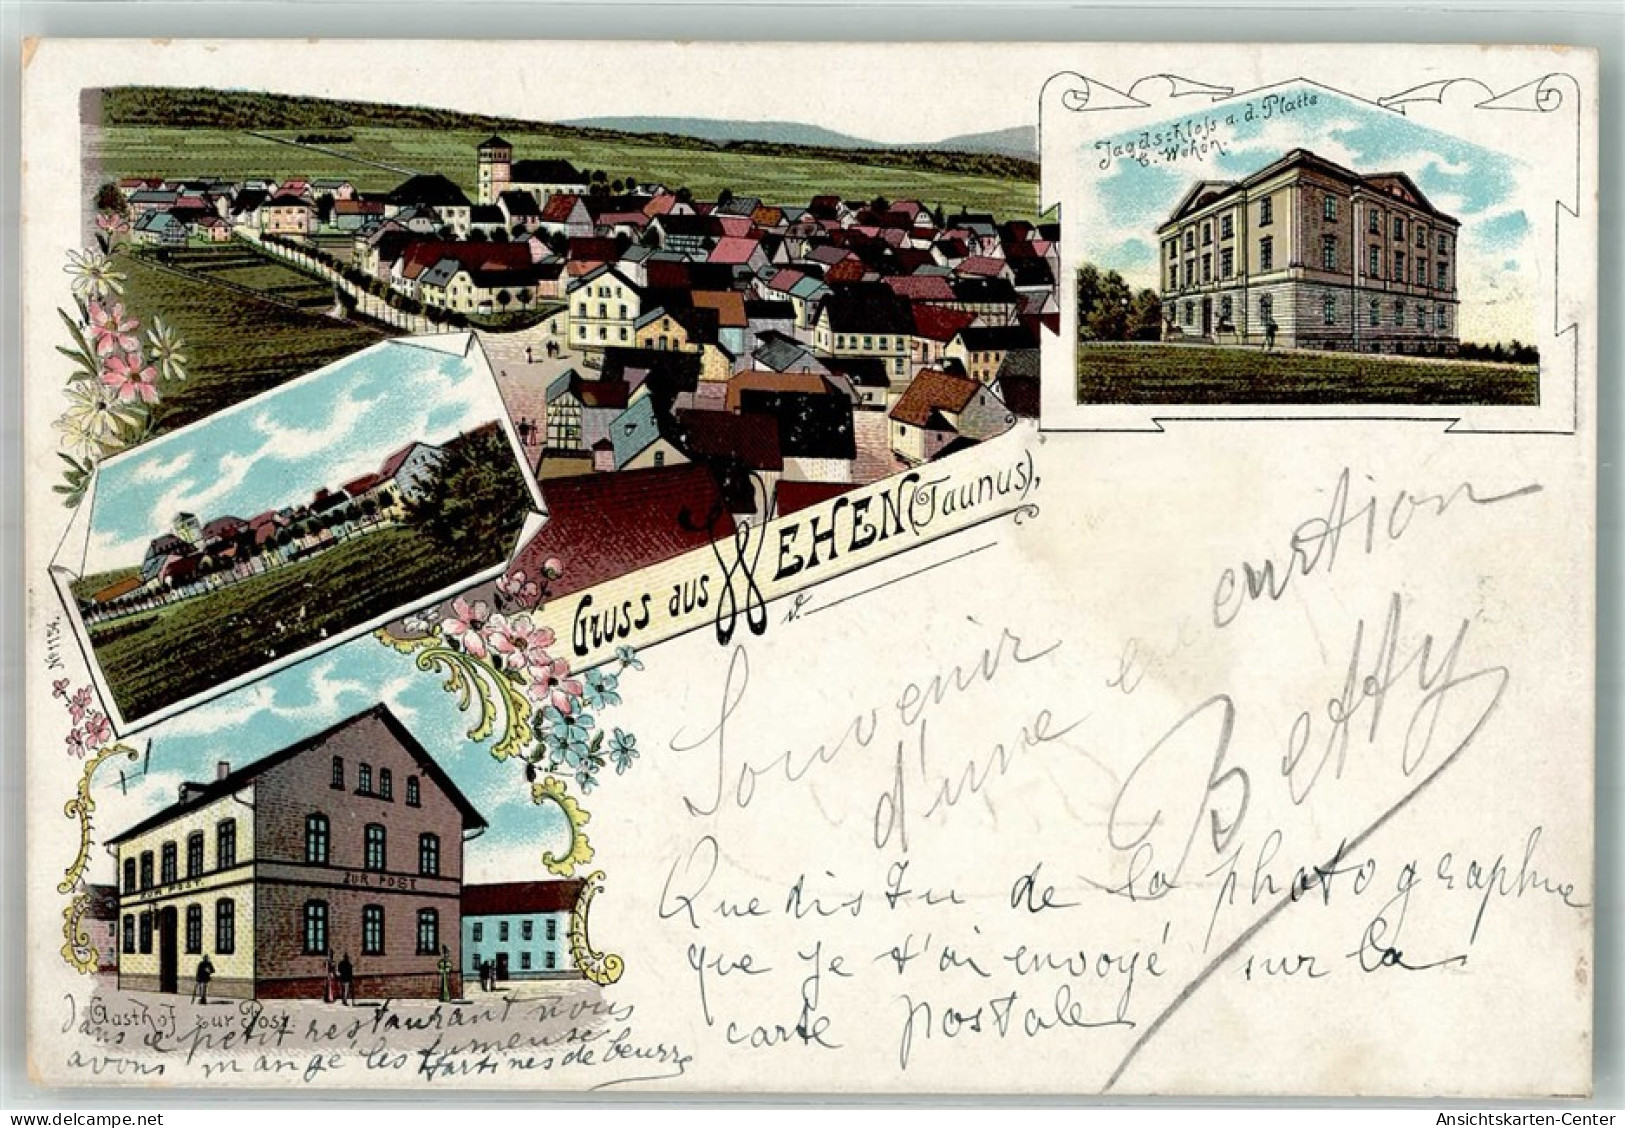 Jagdschloss a. d. Platte
b. Wehen.
Gruss aus WEHEN (Taunus),
d.
No 1134.
ZUR POST.
ZUR POST
Gasthof zur Post.
Souvenir
d'une excursion
Betty
Que dis tu de la photographie
que je t'ai envoyé sur la
carte postale
dans ce petit restaurant nous
avons mangé les fameuses
tartines de beurre
Ansichtskarten-Center